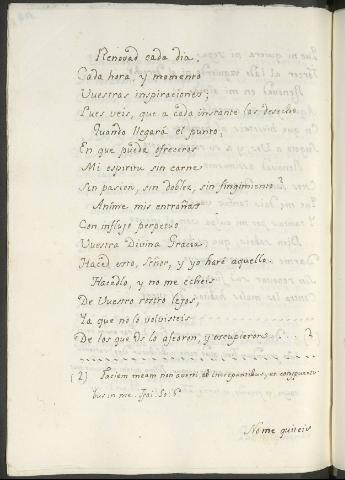 Renovad cada dia.
Cada hora, y momento
Vuestras inspiraciones;
Pues veis, que a cada instante las desecho
Quando llegará el punto,
En que pueda ofreceros
Mi espiritu sin carne
Sin pasion, sin doblez, sin fingimiento?
Anime mis entrañas
Con influjo perpetuo
Vuestra Divina Gracia.
Haced esto, Señor, y yo haré aquello.
Hacedlo, y no me echeis
De Vuestro rostro lejos,
Ya que no lo volvisteis
De los que os lo afearon, y escupieron .... 2
[2] Faciem meam non averti ab increpantibus, et conspuenti-
bus in me. Isai. 50. 6
No me quiteis